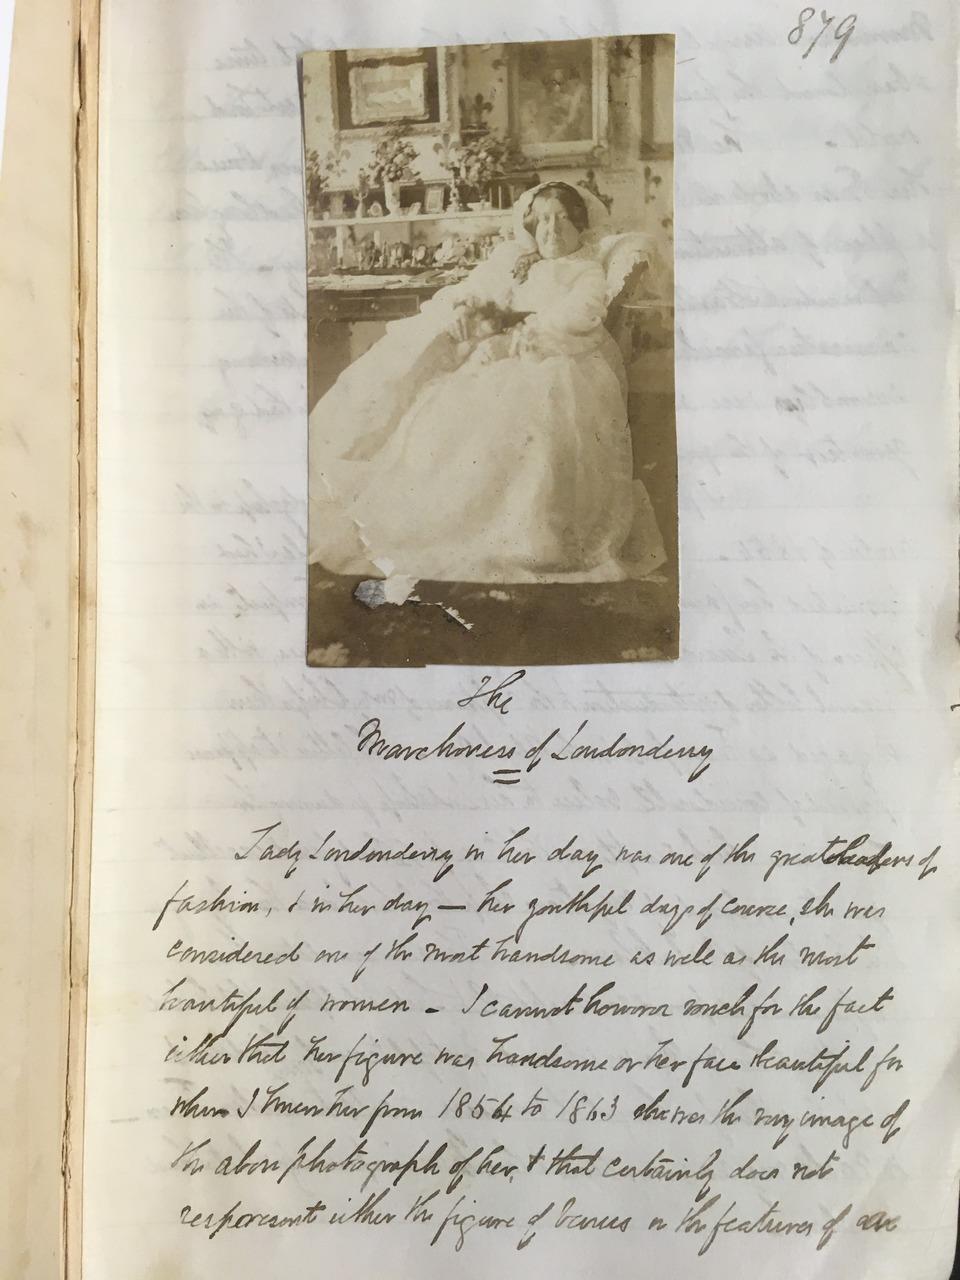 879
The
Marchoness of Londonderry
Lady Londonderry in her day was one of the great leaders of
fashion, & in her day — her youthful days of course, she was
considered one of the most handsome as well as the most
beautiful of women - I cannot however vouch for the fact
either that her figure was handsome or her face beautiful for
when I knew her from 1854 to 1863 she was the very image of
the above photograph of her, & that certainly does not
respresent either the figure of Venus or the features of